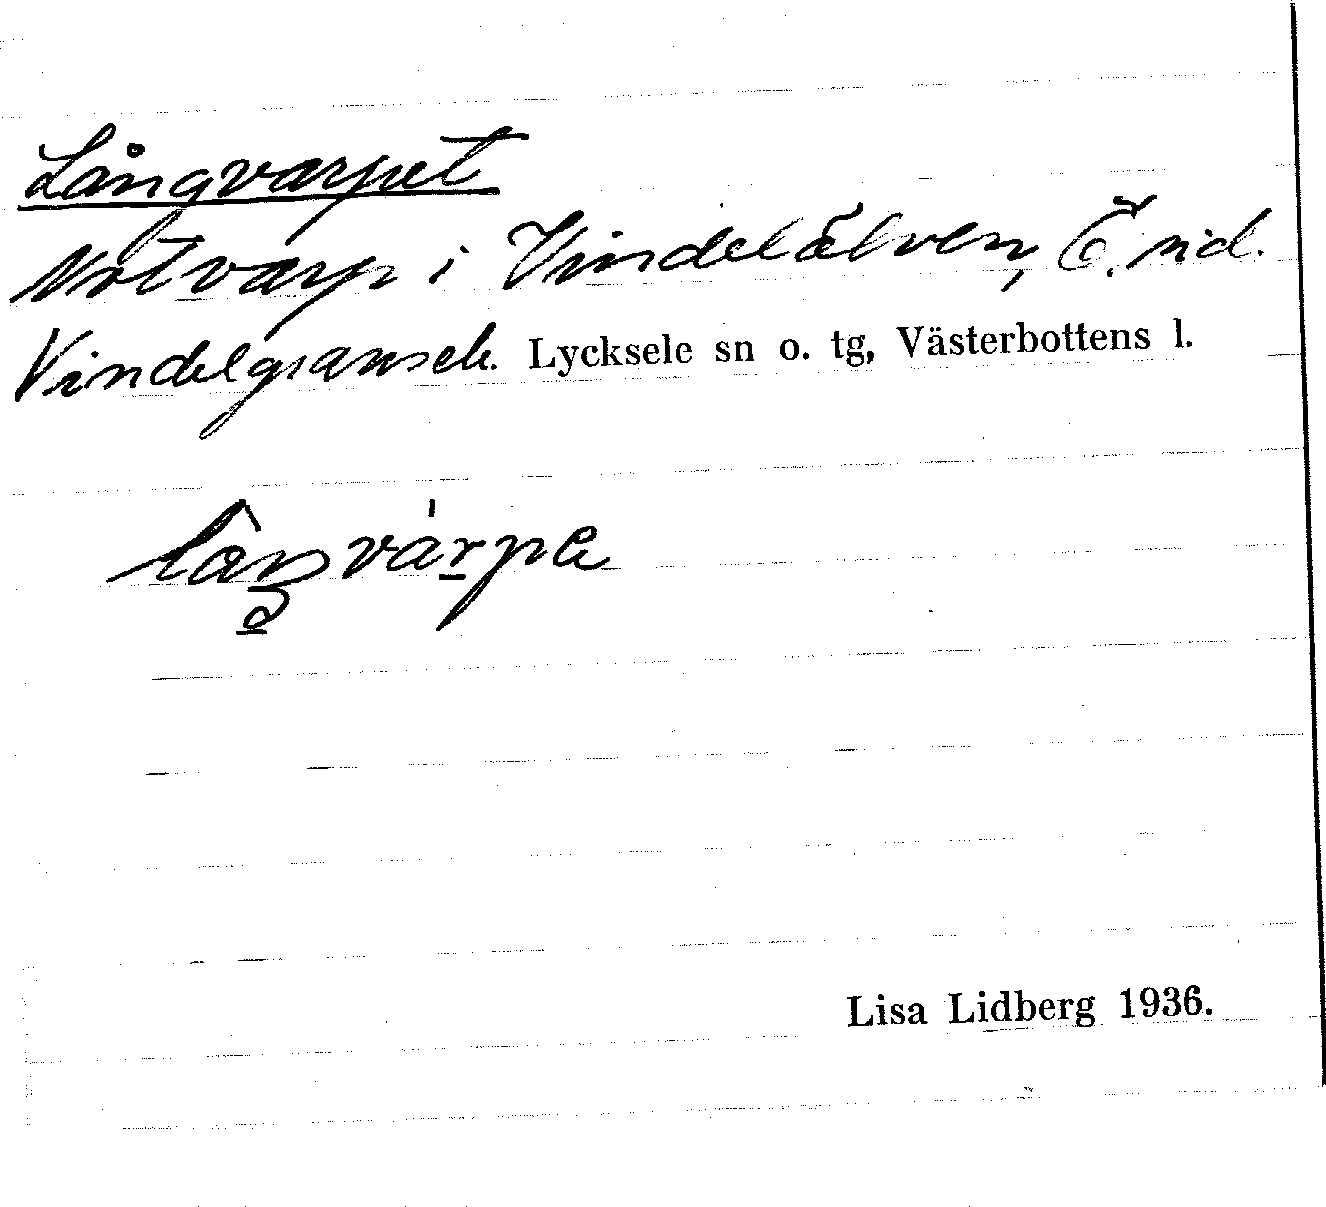 Långvarpet
Notvarp i Vindelälven, Ö. sid.
Vindelgransele. Lycksele sn o. tg, Västerbottens l.
Lisa Lidberg 1936.